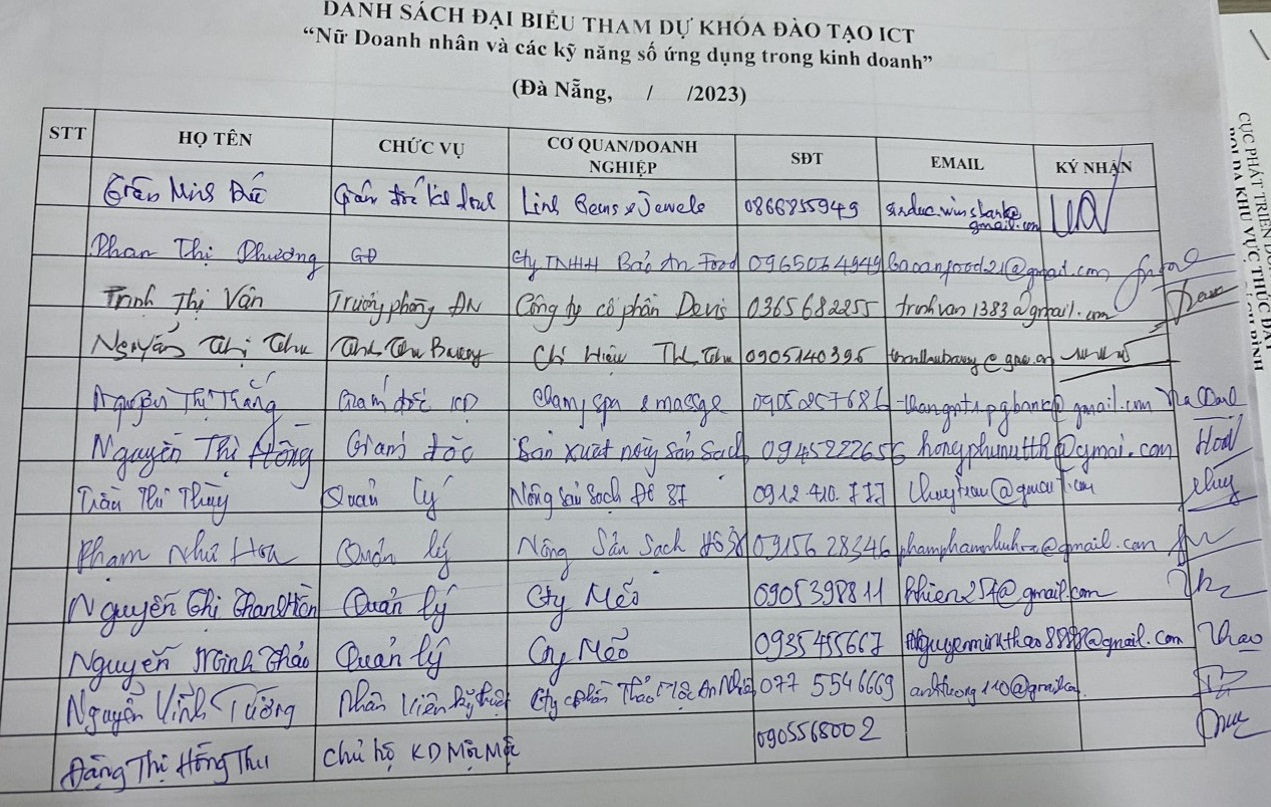 DANH SÁCH ĐẠI BIỂU THAM DỰ KHÓA ĐÀO TẠO ICT
“Nữ Doanh nhân và các kỹ năng số ứng dụng trong kinh doanh”
(Đà Nẵng, / /2023)
STT HỌ TÊN CHỨC VỤ CƠ QUAN/DOANH NGHIỆP SĐT EMAIL KÝ NHẬN
Trần Minh Đức Giám đốc Linh Jewels 0866855949
Phan Thị Phương GĐ Cty TNHH Bảo An Food 0965064949 baoanfood21@gmail.com
Trịnh Thị Vân Trưởng phòng ĐN Công ty cổ phần Devis 0365682255 trinhvan1383@gmail.com
Nguyễn Thị Thu Chí Hiếu 0905140395
Nguyễn Thị Thắng Giám đốc KD spa & massge 0905257686 thangntspgbank@gmail.com
Nguyễn Thị Hồng Giám đốc Sản xuất nông sản sạch 0945222656 hongphunutth@gmai.com
Trần Thị Thủy Quản lý Nông sản sạch 0912.410.777
Phạm Như Hoa Quản lý Nông Sản Sạch 0915628346
Nguyễn Thị Thanh Hiền Quản lý Cty Méo 0905398811 hhien254@gmail.com
Nguyễn Minh Thảo Quản lý Cty Méo 0935455667 nguyenminhthao8888@gmail.com Thao
Nguyễn Vĩnh Tường Nhân viên kỹ thuật Cty cổ phần Thảo Mộc An Nhiên 077 5546669
Đặng Thị Hồng Thu Chủ hộ KD 0905568002
CỤC PHÁT TRIỂN
KHU VỰC THÚC ĐẨY